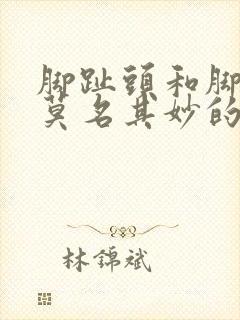 腳趾頭和腳
莫名其妙的
林錦斌